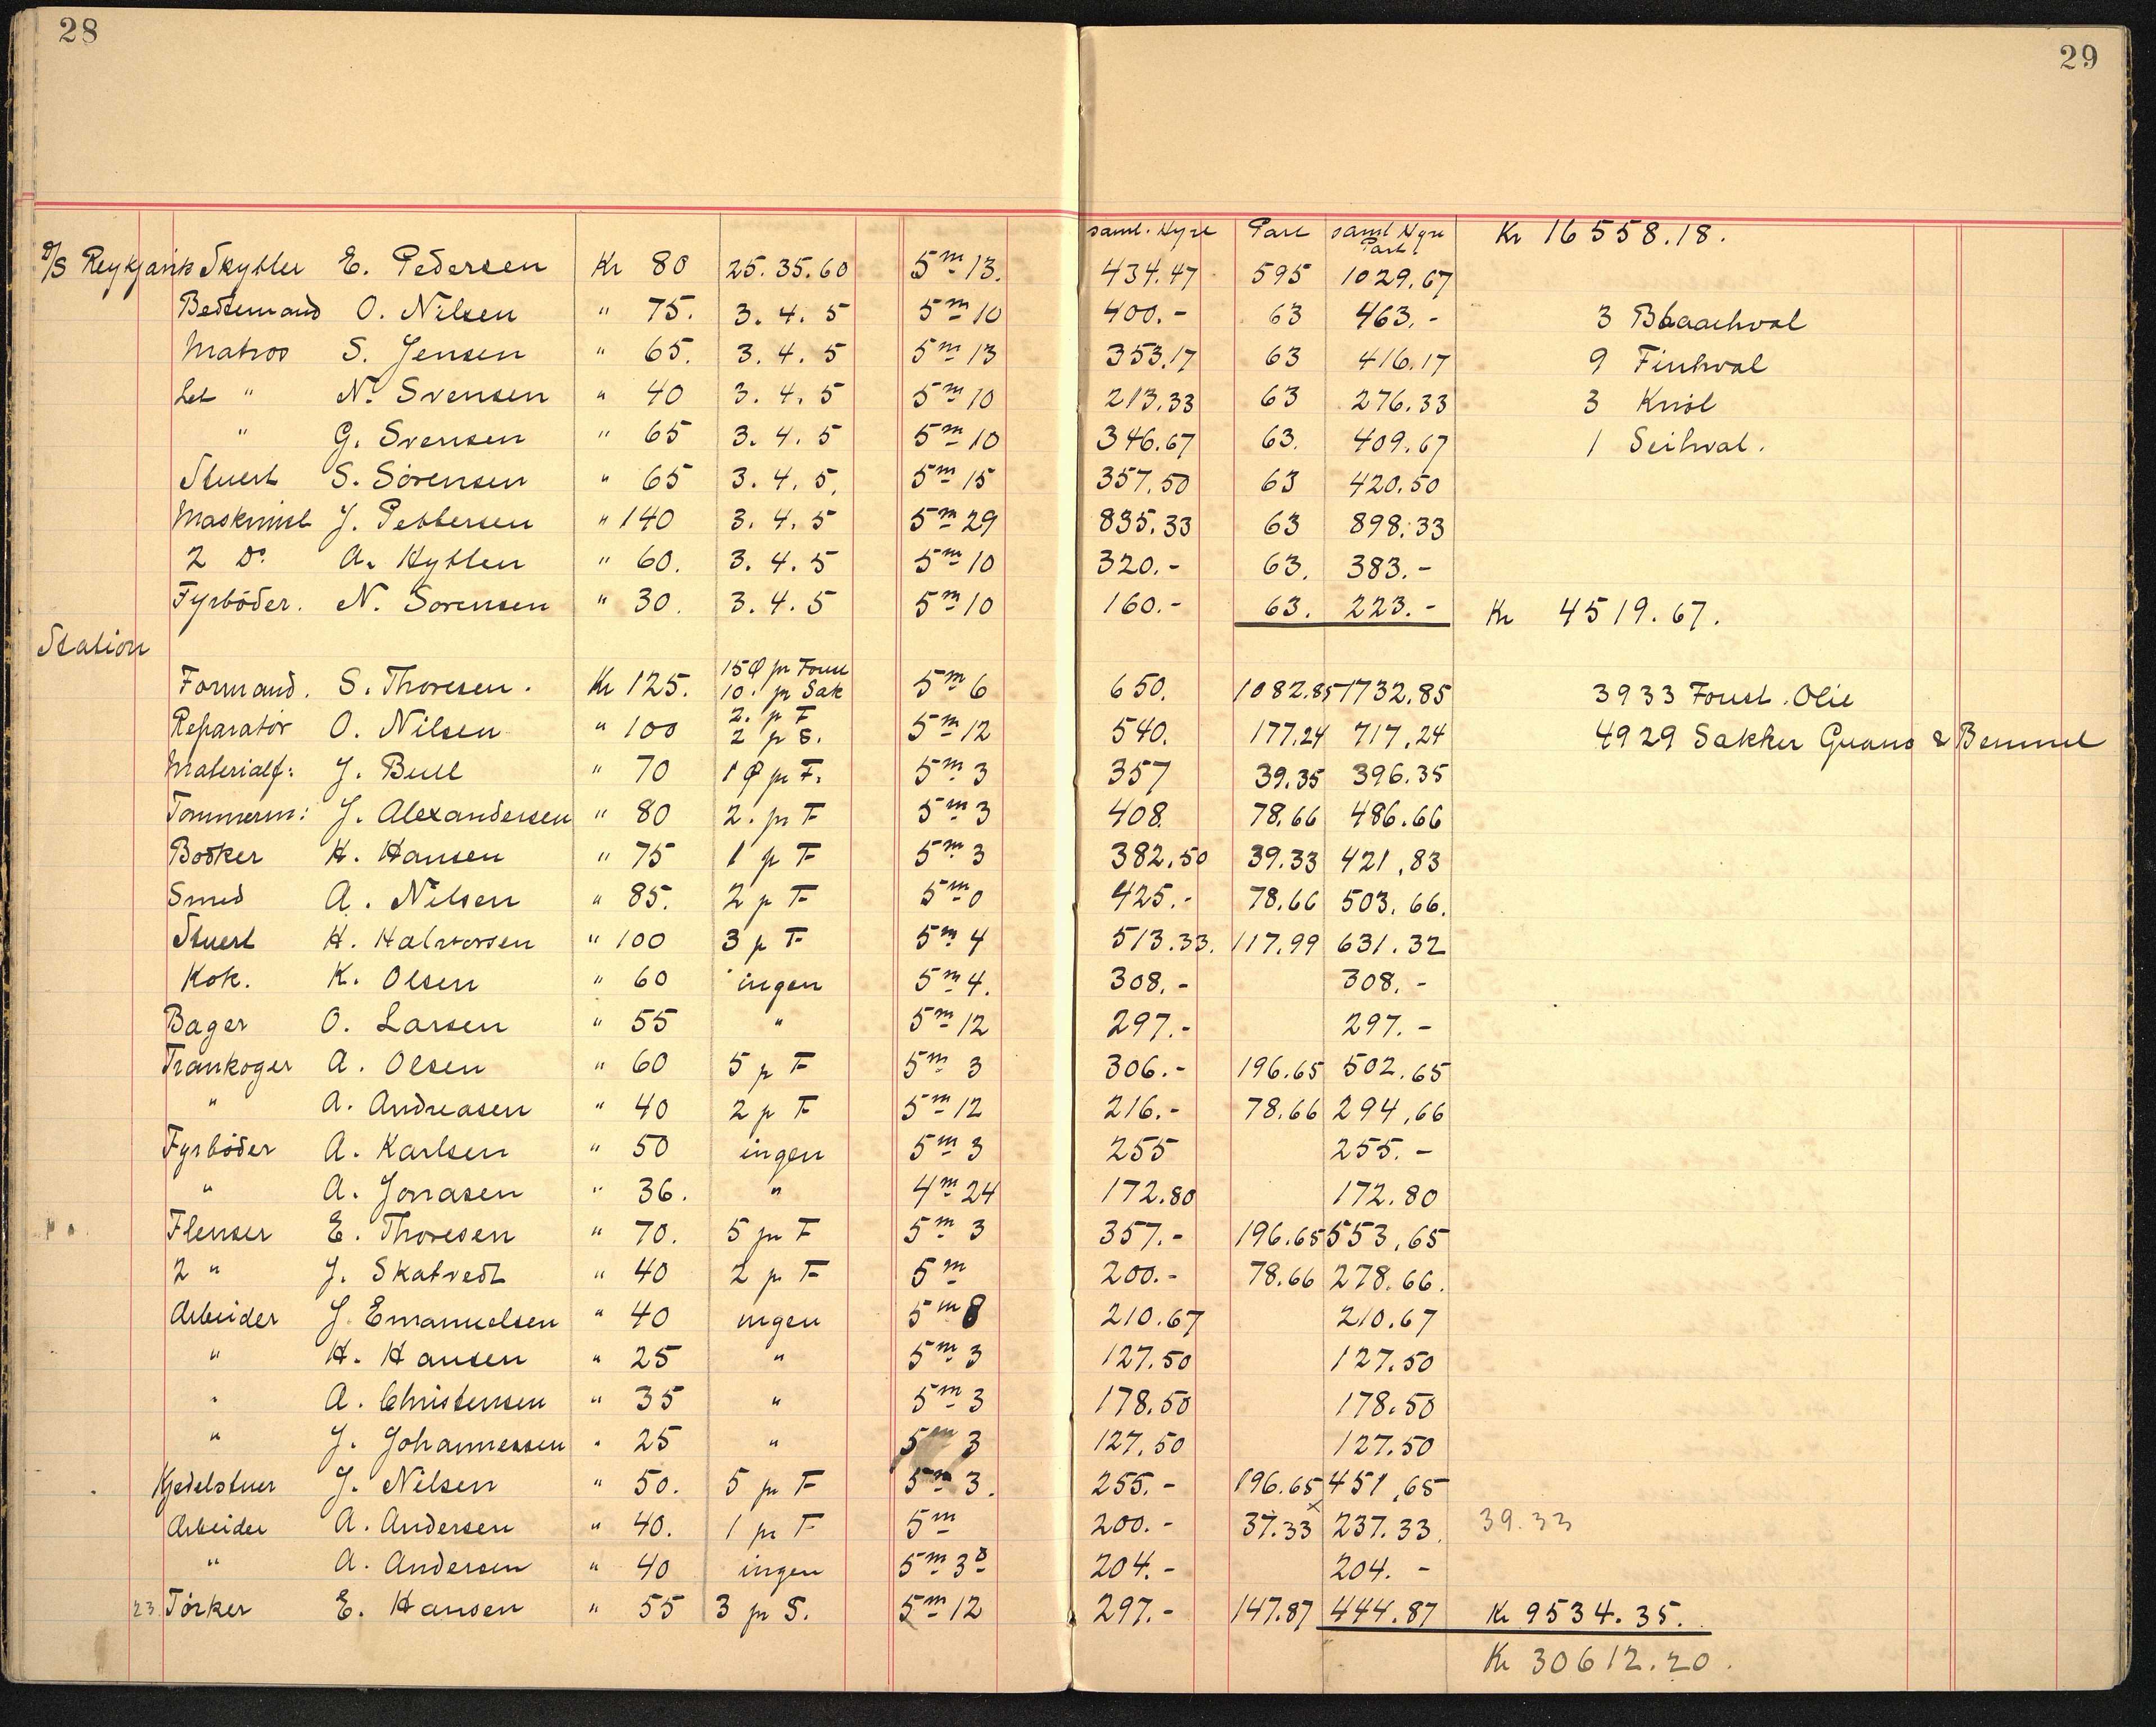 28
29
saml. Hyre Part saml Hyre Part. Kr 16558.18.
D/S Reykjavik Skytter E. Pedersen Kr 80 25.35.60 5 m 13. 434.47 595 1029.67
Bedstemand O. Nilsen " 75. 3. 4. 5 5 m 10 400.- 63 463.- 3 Blaaehval
Matros S. Jensen " 65. 3. 4. 5 5 m 13 353.17 63 416.17 9 Finhval
Let " N. Svensen " 40 3. 4. 5 5 m 10 213.33 63 276.33 3 Knöl
" G. Svensen " 65 3. 4. 5 5 m 10 346.67 63. 409.67 1 Seihval.
Stuert S. Sörensen " 65 3. 4. 5. 5 m 15 357.50 63 420.50
Maskinist J. Pettersen " 140 3. 4. 5 5 m 29 835.33 63 898.33
2 Do A. Hytten " 60. 3. 4. 5 5 m 10 320.- 63. 383.-
Fyrböder. N. Sorensen " 30. 3. 4. 5 5 m 10 160.- 63. 223.- Kr 4519.67.
Station
Formand. S. Thoresen. Kr 125. 15 Ø pr Foust 10. pr Sæk 5 m 6 650. 1082.85 1732.85 3933 Foust. Olie
Reparatör O. Nilsen " 100 2. p F 2 p S. 5 m 12 540. 177.24 717.24 4929 Sækker Guano & Benmel
Materialf: J. Bull " 70 1 Ø pr F. 5 m 3 357 39.35 396.35
Tommerm: J. Alexandersen " 80 2. pr F 5 m 3 408. 78.66 486.66
Bodker H. Hansen " 75 1 p F 5 m 3 382.50 39.33 421.83
Smed A. Nilsen " 85. 2 p F 5 m 0 425.- 78.66 503.66.
Stuert H. Halvorsen " 100 3 p F 5 m 4 513.33. 117.99 631.32
Kok. K. Olsen " 60 ingen 5 m 4. 308.- 308.-
Bager O. Larsen " 55 " 5 m 12 297.- 297.-
Trankoger A. Olsen " 60 5 p F 5 m 3 306.- 196.65 502.65
" A. Andreasen " 40 2 p F 5 m 12 216.- 78.66 294.66
Fyrböder A. Karlsen " 50 ingen 5 m 3 255 255.-
" A. Jonasen " 36. " 4 m 24 172.80 172.80
Flenser E. Thoresen " 70. 5 pr F 5 m 3 357.- 196.65 553.65
2 " J. Skatvedt " 40 2 p F 5 m 200.- 78.66 278.66.
Arbeider J. Emanuelsen " 40 ingen 5 m 8 210.67 210.67
" H. Hansen " 25 " 5 m 3 127.50 127.50
" A. Christensen " 35 " 5 m 3 178.50 178.50
" J. Johannessen " 25 " 5 m 3 127.50 127.50
Kjedelstuer J. Nilsen " 50. 5 pr F 5 m 3. 255.- 196.65 451.65
Arbeider A. Andersen " 40. 1 pr F 5 m 200.- 37.33 x 237.33. 39.33
" A. Andersen " 40 ingen 5 m 3 d 204.- 204.-
23. Törker E. Hansen " 55 3 pr S. 5 m 12 297.- 147.87 444.87 Kr 9534.35.
Kr 30612.20.